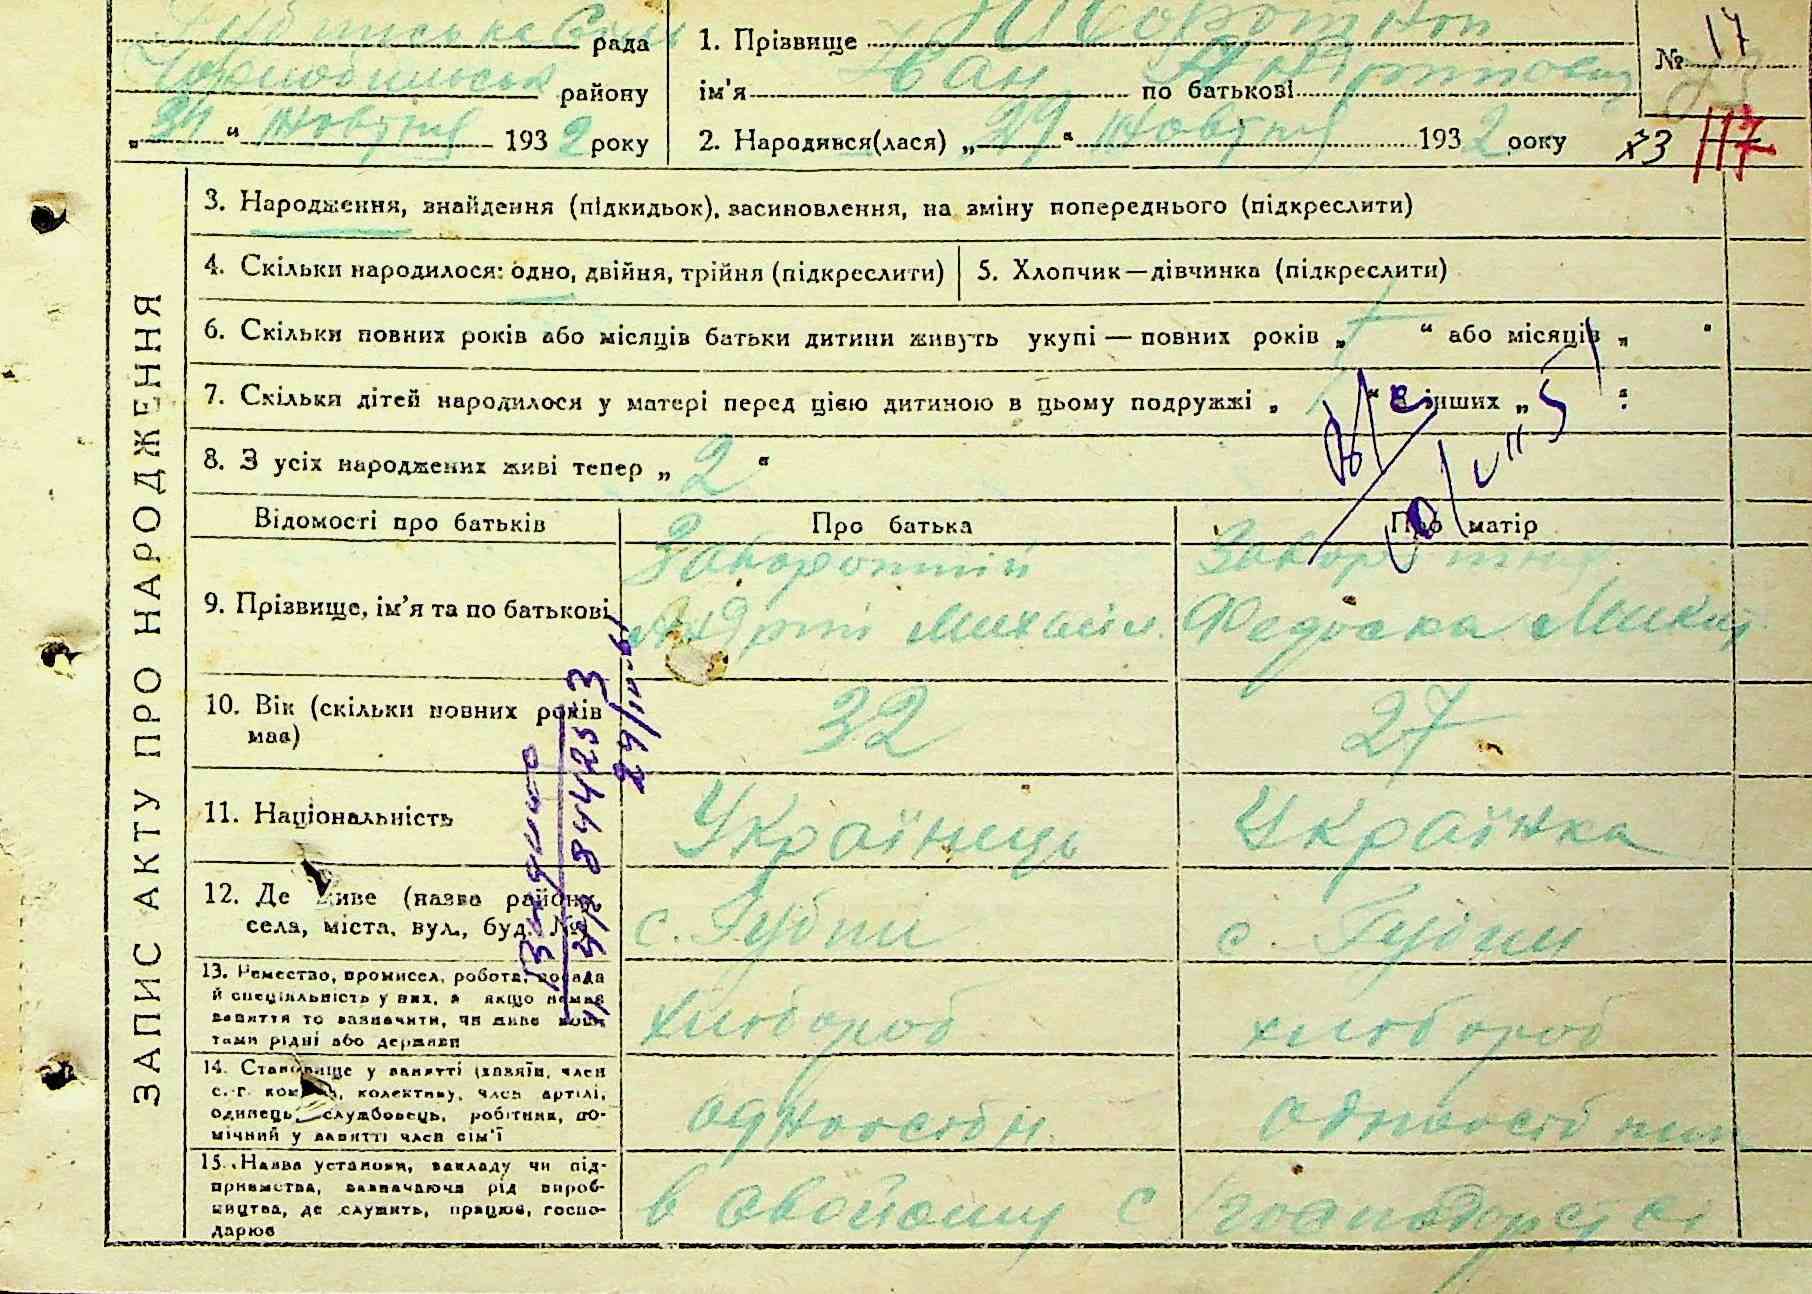 рада
Чорнобильськ району
„31“ Жовтня 1932 року
1. Прізвище
ім'я Іван по батькові Андрійович
2. Народився(лася) „29“ Жовтня 1932 року
№ 17
73
117
ЗАПИС АКТУ ПРО НАРОДЖЕННЯ
3. Народження, знайдення (підкидьок), засиновлення, на зміну попереднього (підкреслити)
4. Скільки народилося: одно, двійня, трійня (підкреслити)
5. Хлопчик—дівчинка (підкреслити)
6. Скільки повних років або місяців батьки дитини живуть укупі — повних років „ 7 “ або місяців „ “
7. Скільки дітей народилося у матері перед цією дитиною в цьому подружжі „ “ в інших „ “
8. З усіх народжених живі тепер „ 2 “
Відомості про батьків
Про батька
Про матір
9. Прізвище, ім'я та по батькові
Заворотній
Андрій Михайл.
Заворотня
Федоска Микит
10. Вік (скільки повних років має)
32
27
11. Національність
Українець
Українка
12. Де живе (назва району, села, міста, вул., буд. №)
с. Губин
с. Губин
13. Ремество, промисел, робота, посада
й спеціяльність у них, а якщо немає
заняття то зазначити, чи живе кош-
тами рідні або держави
хлібороб
хлібороб
14. Становище у занятті (хазяїн, член
с.-г. комуни, колективу, член артілі,
одинець, службовець, робітник, по-
мічний у занятті член сім'ї
одноосібн.
одноосібник
15. Назва установи, закладу чи під-
приємства, зазначаючи рід вироб-
ництва, де служить, працює, госпо-
дарює
в свойому с/господарстві
Видано
844253